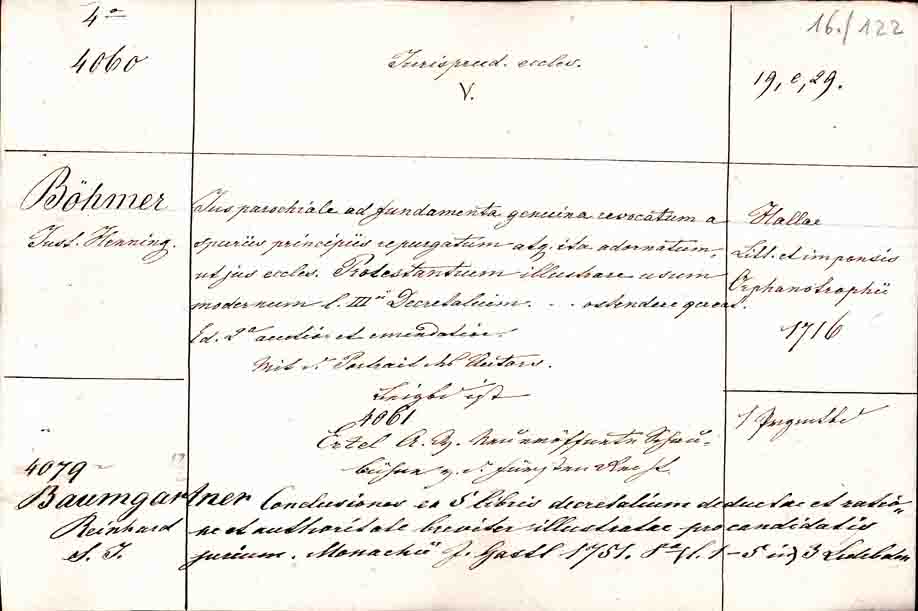 4o
16./122
4060
Jurisprud. eccles.
V.
19,e,29.
Böhmer
Just. Henning.
Jus parochiale ad fundamenta genuina revocatum a
spuriis principiis repurgatum atq. ita adornatum,
ut jus eccles. Protestantium illustrare usum
modernum l. III ii Decretalium . . . ostendere queat.
Ed. 2a auctior et emendatior.
Mit d. Portrait des Autors.
Hallae
Litt. et impensis
Orphanotrophii
1716
ist
4061
Ertel A. W. Neueröffnete Schau-
bühne v. d. Fürsten Recht.
1 Pergmtbd
4079
Baumgartner Conclusiones ex 5 libris decretalium deductae et ratio-
Reinhard
S. J.
ne et authoritate breviter illustratae pro candidatis
jurium. Monachii J. Gastl 1751. 8o (l. 1-5 in) 3 Lederbden